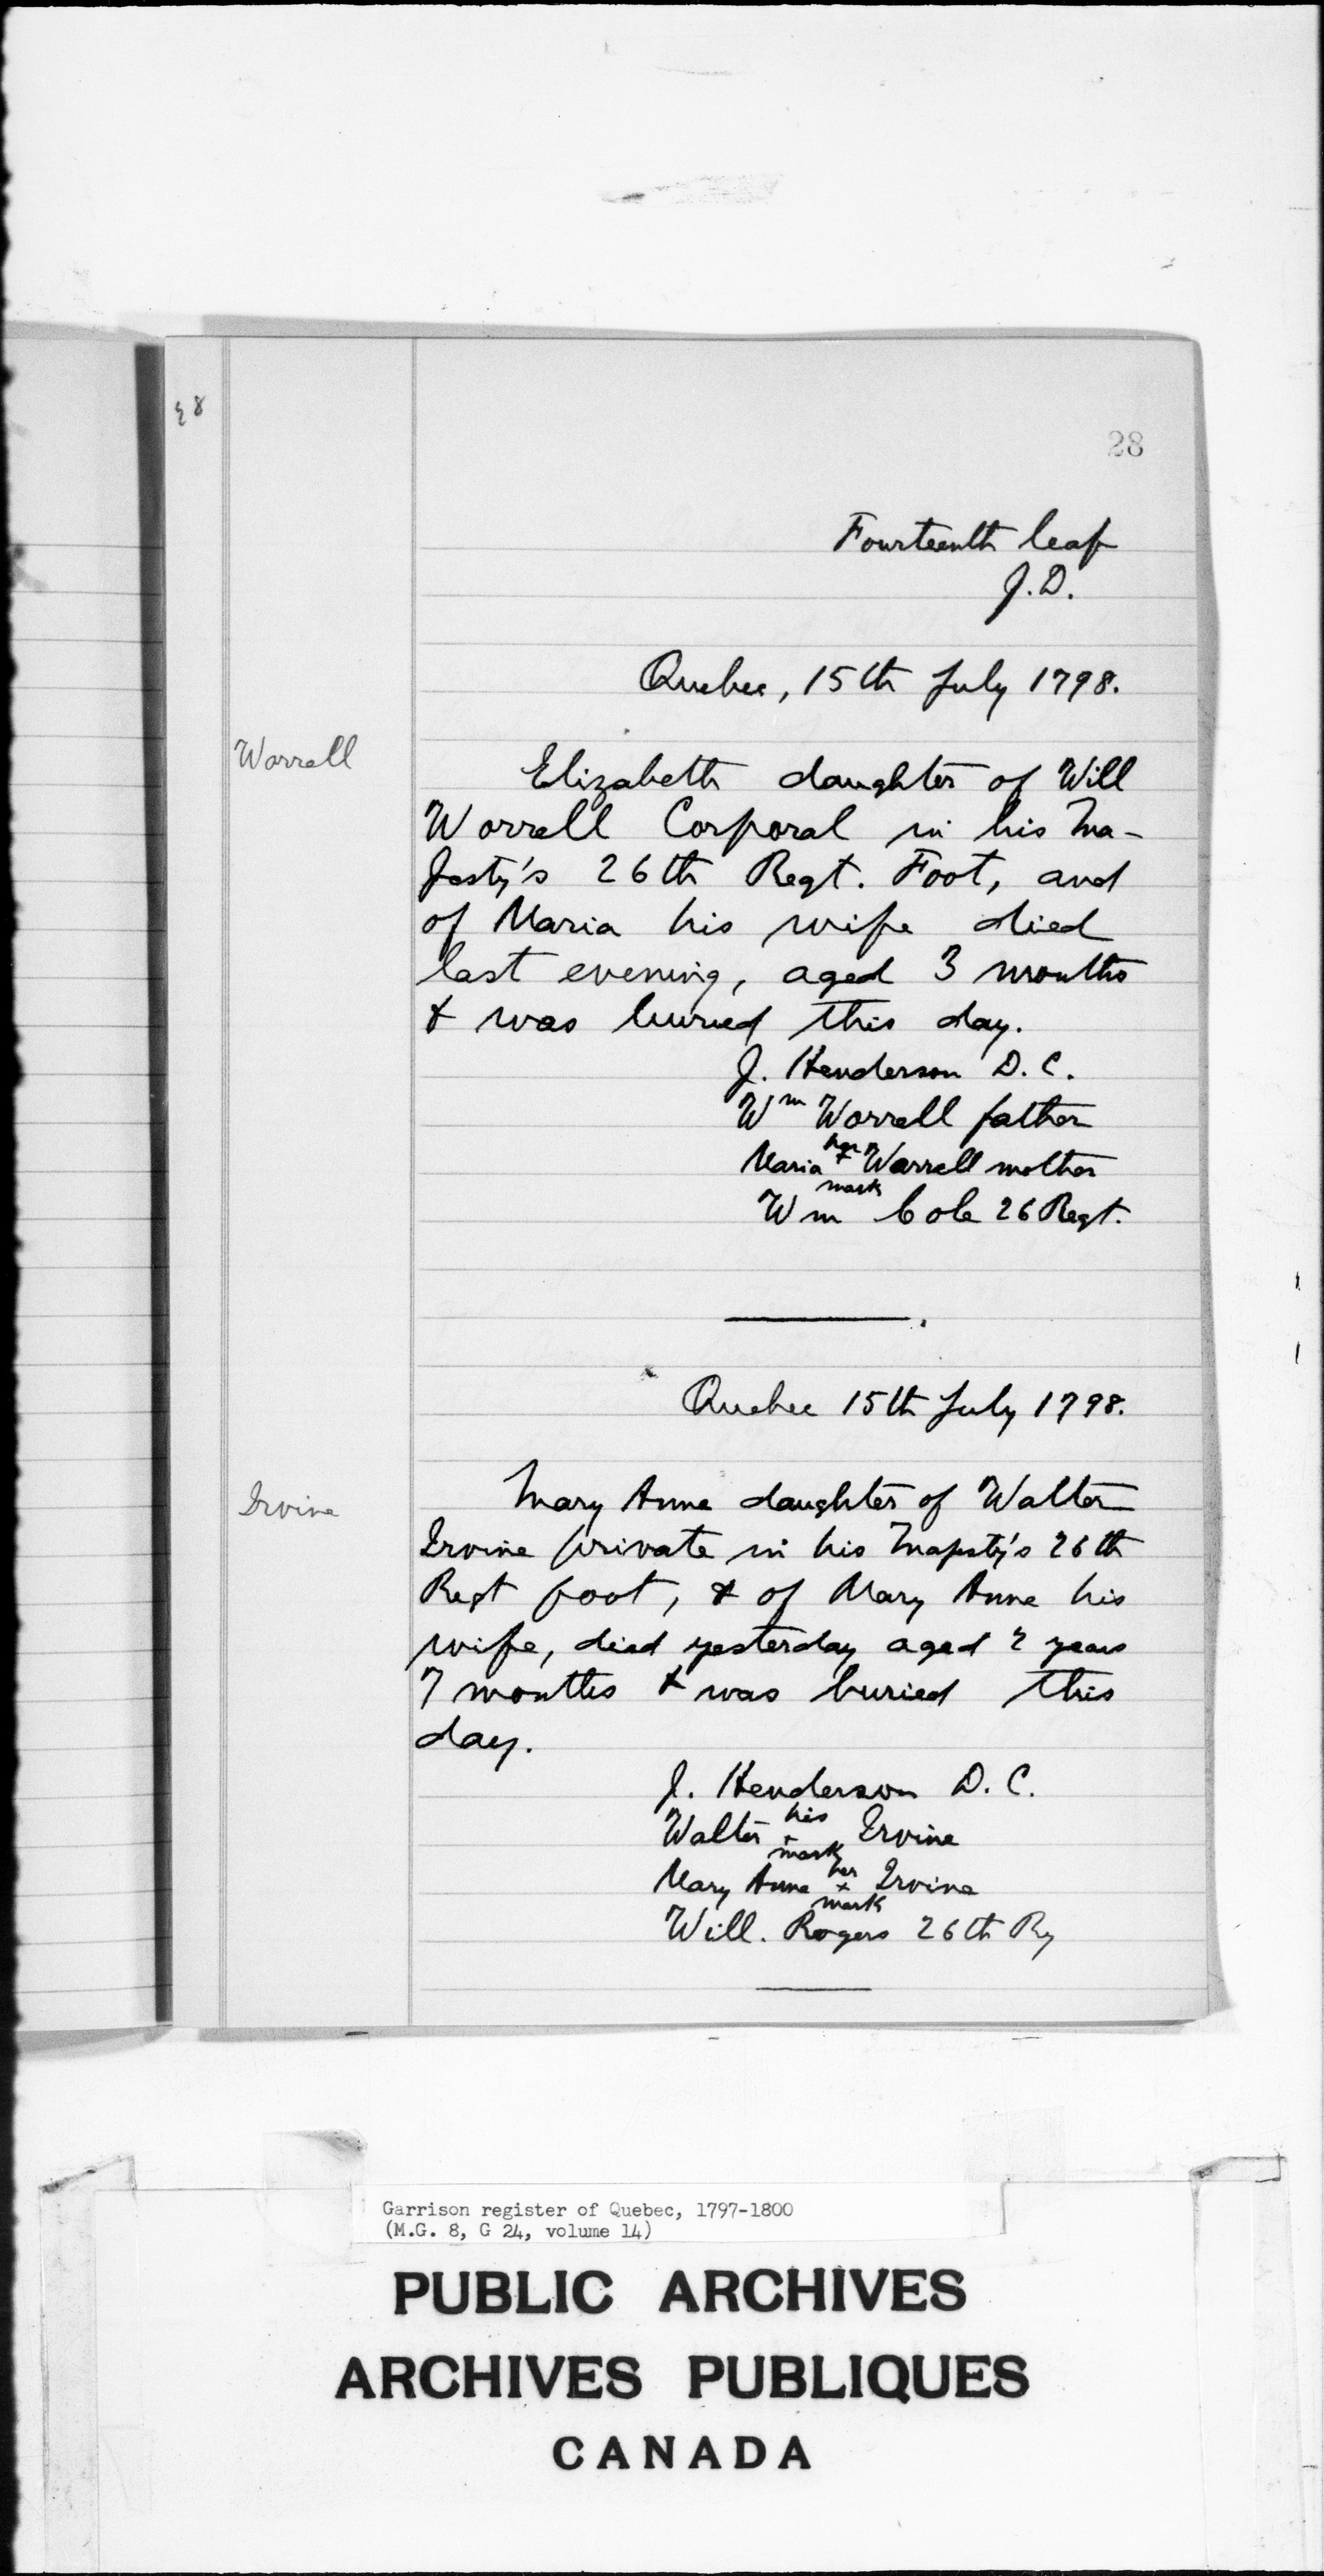 28
28
Fourteenth leaf
J.D.
Quebec, 15th July 1798.
Worrell
Elizabeth daughter of Will
Worrell Corporal in his Ma-
jesty's 26th Regt. Foot, and
of Maria his wife died
last evening, aged 3 months
& was buried this day.
J. Henderson D. C.
Wm Worrell father
her
Maria + Warrell mother
mark
Wm Cole 26 Regt.
Quebec 15th July 1798.
Irvine
Mary Anne daughter of Walter
Irvine private in his Majesty's 26th
Regt foot, & of Mary Anne his
wife, died yesterday aged 2 years
7 months & was buried this
day.
J. Henderson D. C.
his
Walter + Irvine
mark
her
Mary Anne x Irvine
mark
Will. Rogers 26th Rg
Garrison register of Quebec, 1797-1800
(M.G. 8, G 24, volume 14)
PUBLIC ARCHIVES
ARCHIVES PUBLIQUES
CANADA